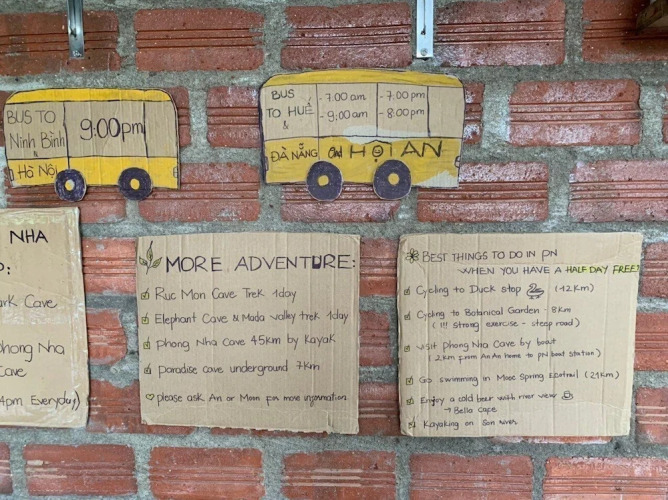 BUS TO
Ninh Bình
&
Hà Nội
9:00pm
BUS
TO HUẾ
&
- 7:00 am
- 9:00 am
- 7:00 pm
- 8:00 pm
ĐÀ NẴNG and HỘI AN
NHA
P:
ark Cave
phong Nha
Cave
4pm Everyday)
MORE ADVENTURE:
Ruc Mon Cave Trek 1day
Elephant Cave & Mada valley trek 1day
phong Nha Cave 4.5km by Kayak
paradise cave underground 7km
please ask An or Moon for more information
BEST THINGS TO DO IN PN
WHEN YOU HAVE A HALF DAY FREE!
Cycling to Duck stop (12Km)
Cycling to Botanical Garden - 8km
( !!! Strong exercise - steep road)
visit Phong Nha Cave by boat
(2km from An An home to PN boat station)
Go swimming in Mooc Spring Ecotrail (21km)
Enjoy a cold beer with river view
→ Bella cafe
Kayaking on Son river